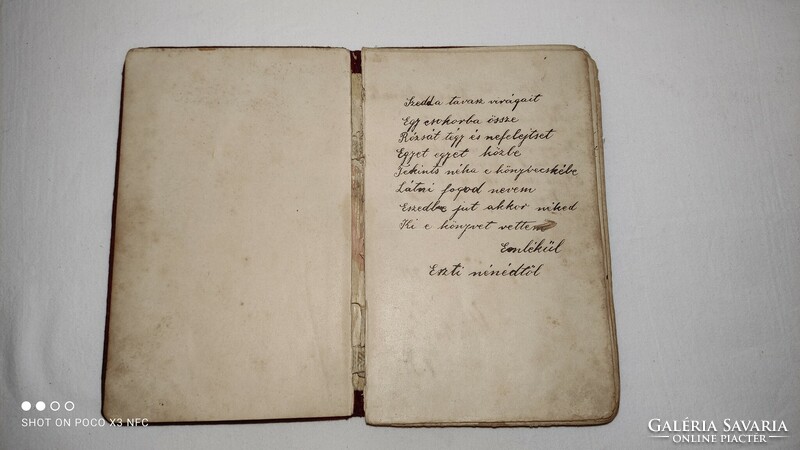 Szedd a tavasz virágait
Egy csokorba össze
Rózsát tégy és nefelejtset
Egyet egyet közbe
Tékints néha e könyvecskébe
Látni fogod nevem
Eszedbe jut akkor néked
Ki e könyvet vettem
Emlékül
Eszti nénédtől
SHOT ON POCO X3 NFC
GALÉRIA SAVARIA
ONLINE PIACTÉR